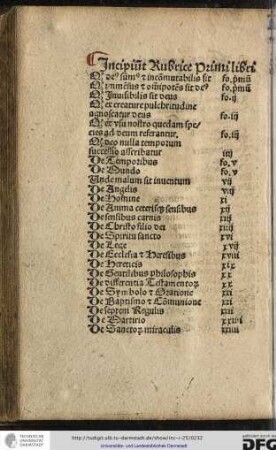 Incipiũt Rubrice Primi libri
Q deꝰ sũmꝰ ⁊ incõmutabilis sit fo. pᵐũ
Q ĩmẽsus ⁊ oĩpotẽs sit deꝰ fo. pᵐũ
Q Inuisibilis sit deus fo. ij
Q ex creature pulchritudine
agnoscatur deus fo. iij
Q ex vsu nostro quedam spe-
cies ad deum referantur. fo. iij
Q deo nulla temporum
successio asscribatur iiij
De Temporibus fo. v
De Mundo fo. v
Unde malum sit inuentum vij
De Angelis viij
De Homine xi
De Anima ceterisqꝫ sensibus xij
De sensibus carnis xiij
De Christo filio dei xiiij
De Spiritu sancto xvi
De Lege xvij
De Ecclesia ⁊ Heresibus xviij
De Hereticis xix
De Gentilibus philosophis xx
De differentia Testamentoꝝ xx
De Symbolo ⁊ Oratione xxi
De Baptismo ⁊ Cõmunione xxi
De septem Regulis xxij
De Martirio xxiij
De Sanctoꝝ miraculis xxiiij
http://tudigit.ulb.tu-darmstadt.de/show/inc-ii-251/0232
Universitäts- und Landesbibliothek Darmstadt
gefördert durch die
DFG